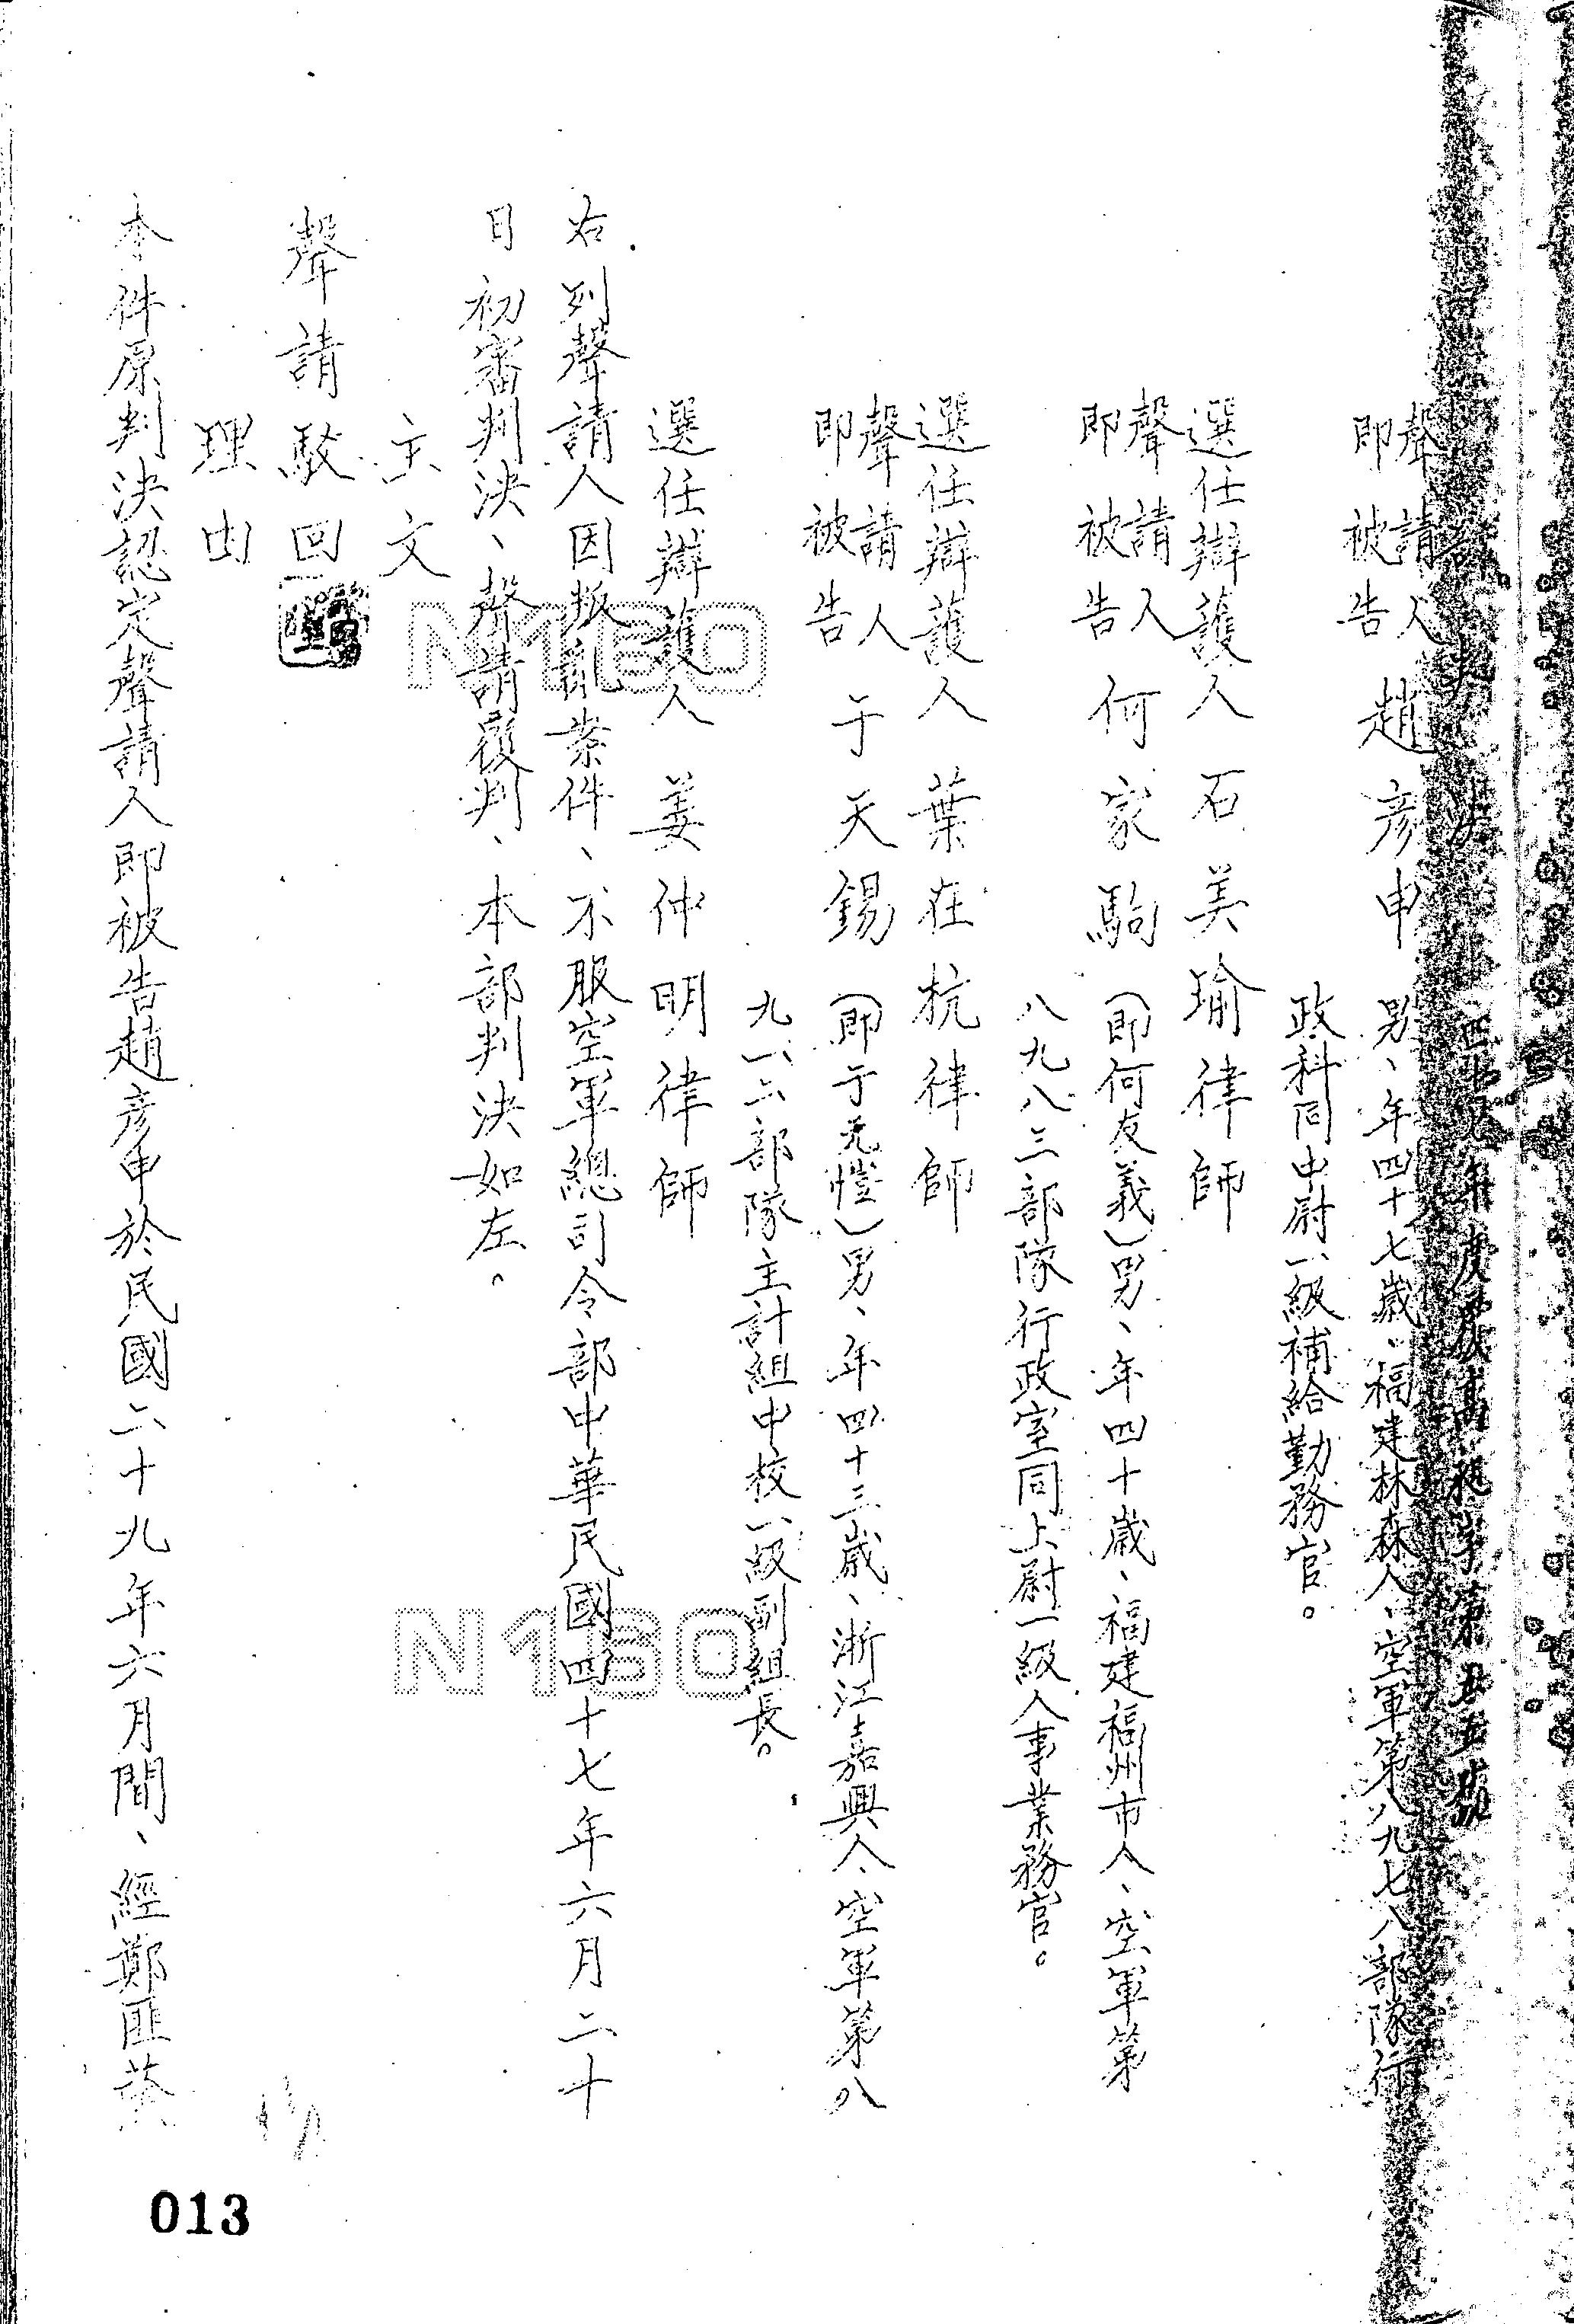 年度覆高 字第五五號
聲請人
即被告 趙彥申 男、年四十七歲、福建林森人、空軍第八九七八部隊行
政科同中尉一級補給勤務官。
選任辯護人 石美瑜律師
聲請人
即被告 何家駒 (即何友義)男、年四十歲、福建福州市人、空軍第
八九八三部隊行政室同上尉一級人事業務官。
選任辯護人 葉在杭律師
聲請人
即被告 于天錫 (即于元愷)男、年四十三歲、浙江嘉興人、空軍第八
九一二部隊主計組中校一級副組長。
選任辯護人 姜仲明律師
右列聲請人因叛亂案件、不服空軍總司令部中華民國四十七年六月二十
日初審判決、聲請覆判、本部判決如左。
主文
聲請駁回
理由
本件原判決認定聲請人即被告趙彥申於民國二十九年六月間、經鄭匪
N160
N160
013